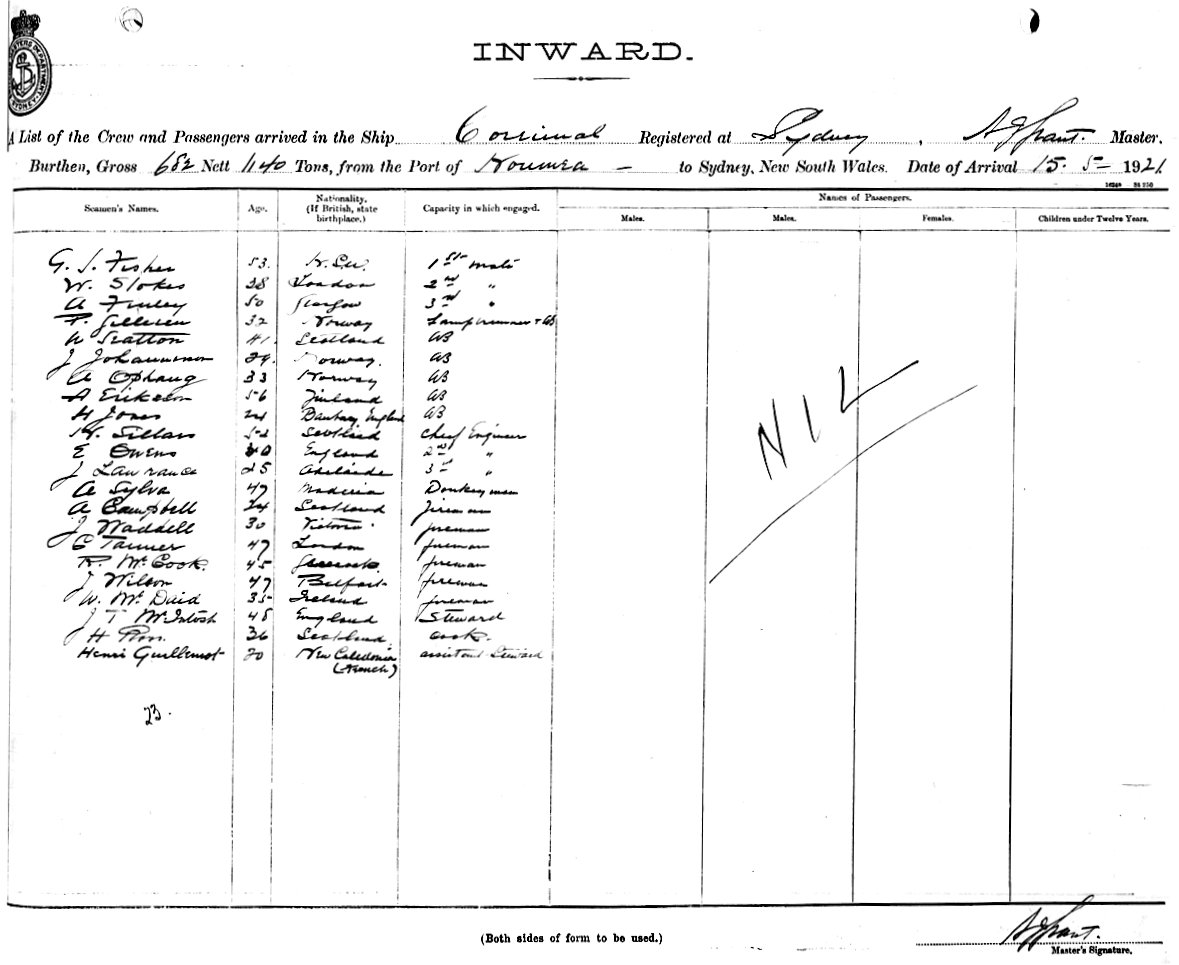 INWARD.
A List of the Crew and Passengers arrived in the Ship Corrimal Registered at Sydney, A J Grant. Master.
Burthen, Gross 682 Nett 1140 Tons, from the Port of Noumea — to Sydney, New South Wales. Date of Arrival 15. 5 — 1921.
Seamen's Names. Age. Nationality. (If British, state birthplace.) Capacity in which engaged. Names of Passengers.
Males. Males. Females. Children under Twelve Years.
G. J. Fisher 53. N.S.W. 1st mate
W. Stokes 38 London 2nd "
A Finley 50 Glasgow 3rd "
32 Norway Lamptrimmer + AB
41 Scotland AB
J Johannesson 29. Norway. AB
A Ophaug 33 Norway AB
A Erikson 56 Finland AB
H Jones 24 Banbury, England AB
H. Sillars 52 Scotland Chief Engineer
E Owens England 2nd "
J Lawrance 25 Adelaide 3rd "
A Sylva 47 Maderia Donkeyman
A Campbell 24 Scotland Fireman
J Waddell 30 Victoria. fireman
C Tanner 47 London fireman
R. McCook. 45 fireman
J Wilson 47 Belfast fireman
W. McDaid 35 Ireland fireman
J T McIntosh 48 England Steward
H 36 Scotland cook.
Henri Guillemot 20 New Caledonia assistant Steward
(French)
NIL
23.
(Both sides of form to be used.)
A J Grant.
Master's Signature.